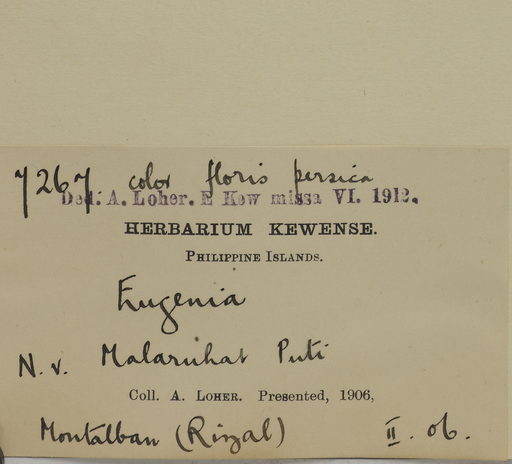 7267 color floris persica
Ded. A. Loher. E Kew missa VI. 1912.
HERBARIUM KEWENSE.
PHILIPPINE ISLANDS.
Eugenia
N. v. Malaruhat Puti
Coll. A. LOHER. Presented, 1906,
Montalban (Rizal) II. 06.